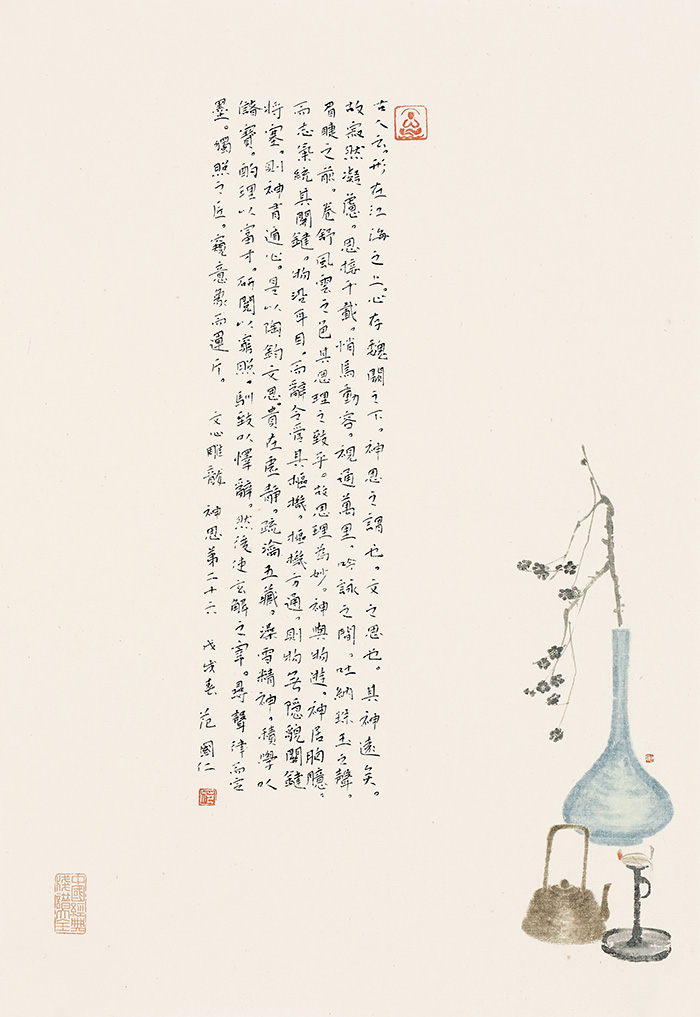 古人云。形在江海之上。心存魏闕之下。神思之謂也。文之思也。其神遠矣。
故寂然凝慮。思接千載。悄焉動容。視通萬里。吟詠之間。吐納珠玉之聲。
眉睫之前。卷舒風雲之色其思理之致乎。故思理為妙。神與物遊。神居胸臆。
而志氣統其關鍵。物沿耳目。而辭令管其樞機。樞機方通。則物無隱貌關鍵
將塞。則神有遁心。是以陶鈞文思。貴在虛靜。疏瀹五藏。澡雪精神。積學以
儲寶。酌理以富才。研閱以窮照。馴致以懌辭。然後使玄解之宰。尋聲律而定
墨。燭照之匠。窺意象而運斤。 文心雕龍 神思第二十六 戊戌春 范國仁
中國經典
譜大全